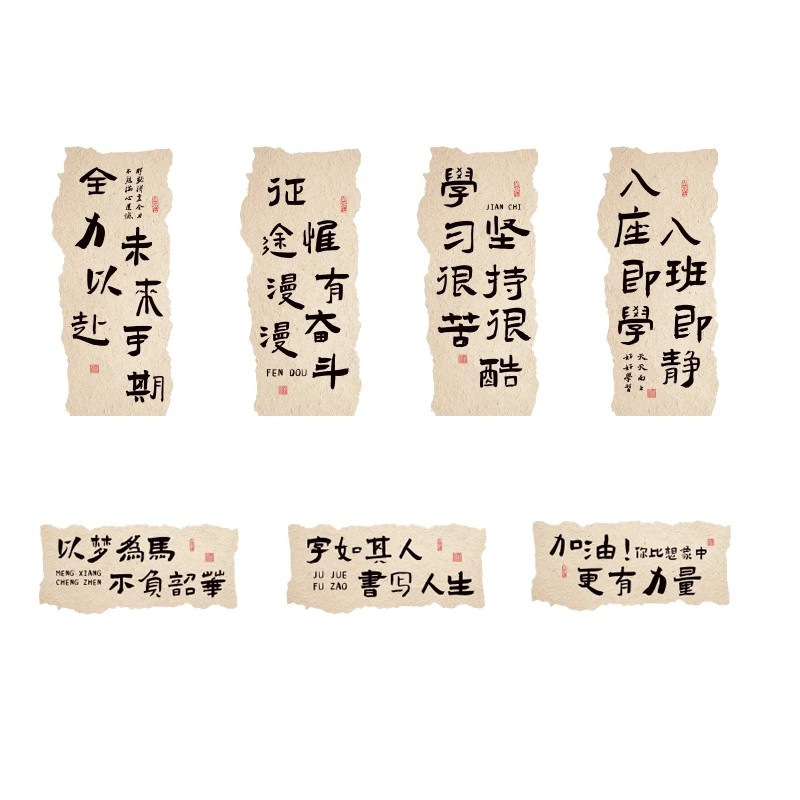 全力以赴
未來可期
征途漫漫
惟有奋斗
FEN DOU
學习很苦
坚持很酷
JIAN CHI
入座即學
入班即静
好好學習
天天向上
以梦為馬
MENG XIANG
CHENG ZHEN
不負韶華
字如其人
JU JUE
FU ZAO
書写人生
加油!你比想象中
更有力量